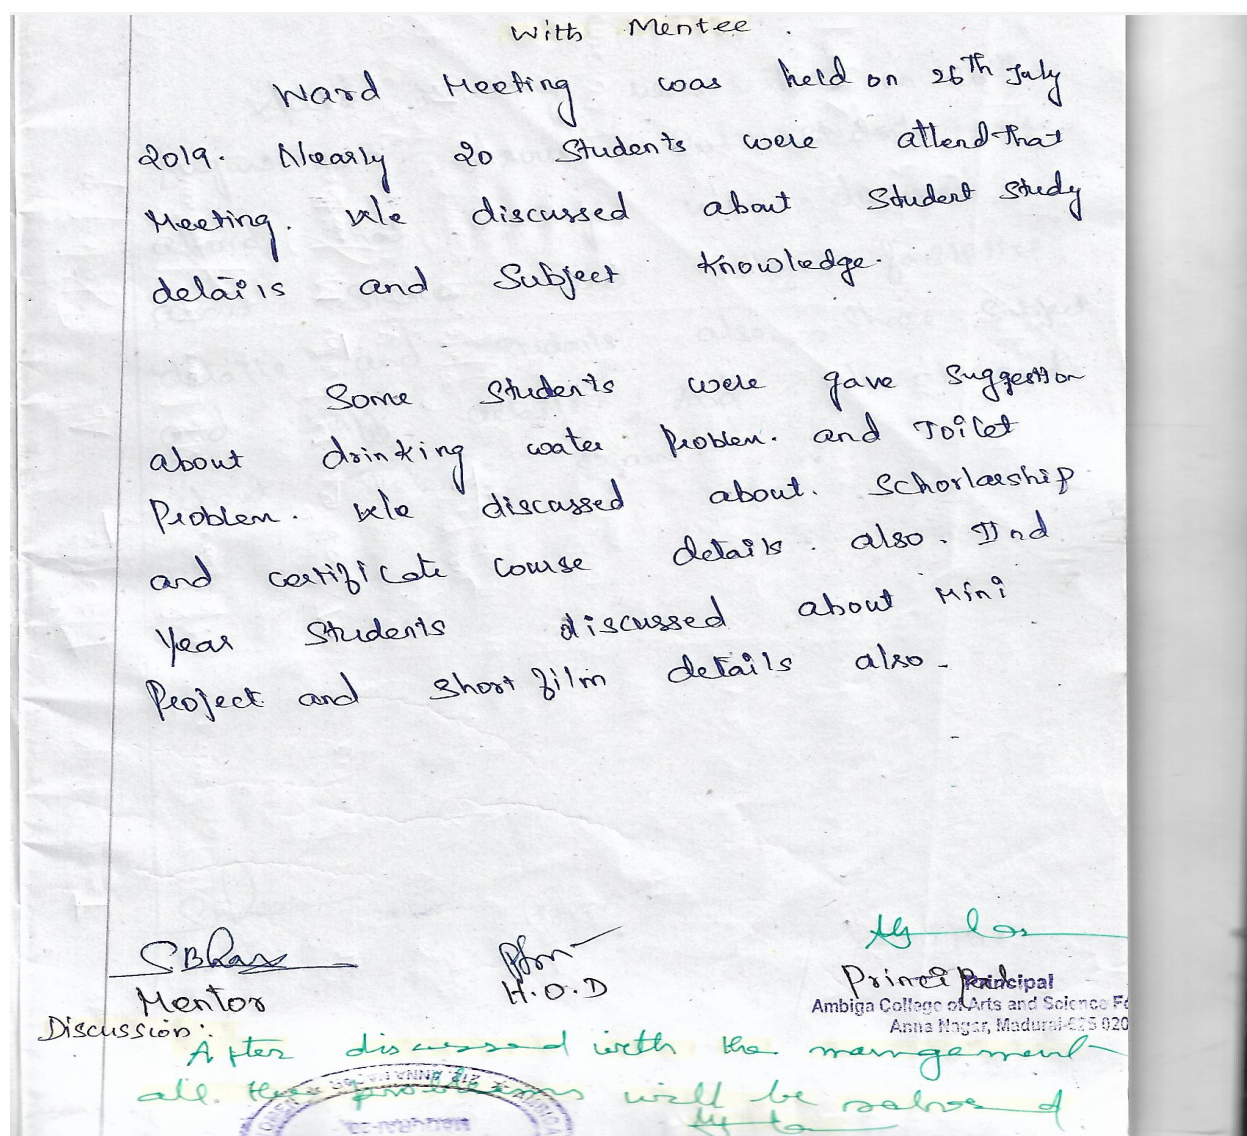 With Mentee.
Ward Meeting was held on 26th July
2019. Nearly 20 Students were attend that
Meeting. We discussed about Student Study
details and Subject Knowledge.
Some Students were gave Suggestion
about drinking water Problem. and Toilet
Problem. We discussed about. Schorlarship
and certificate course details. also. IInd
Year Students discussed about Mini
Project and Short film details also.
Mentor H.O.D Principal
Principal
Ambiga College of Arts and Science Fo
Anna Nagar, Madurai-625 020
Discussion:
After discussed with the management
all the problems will be solved.